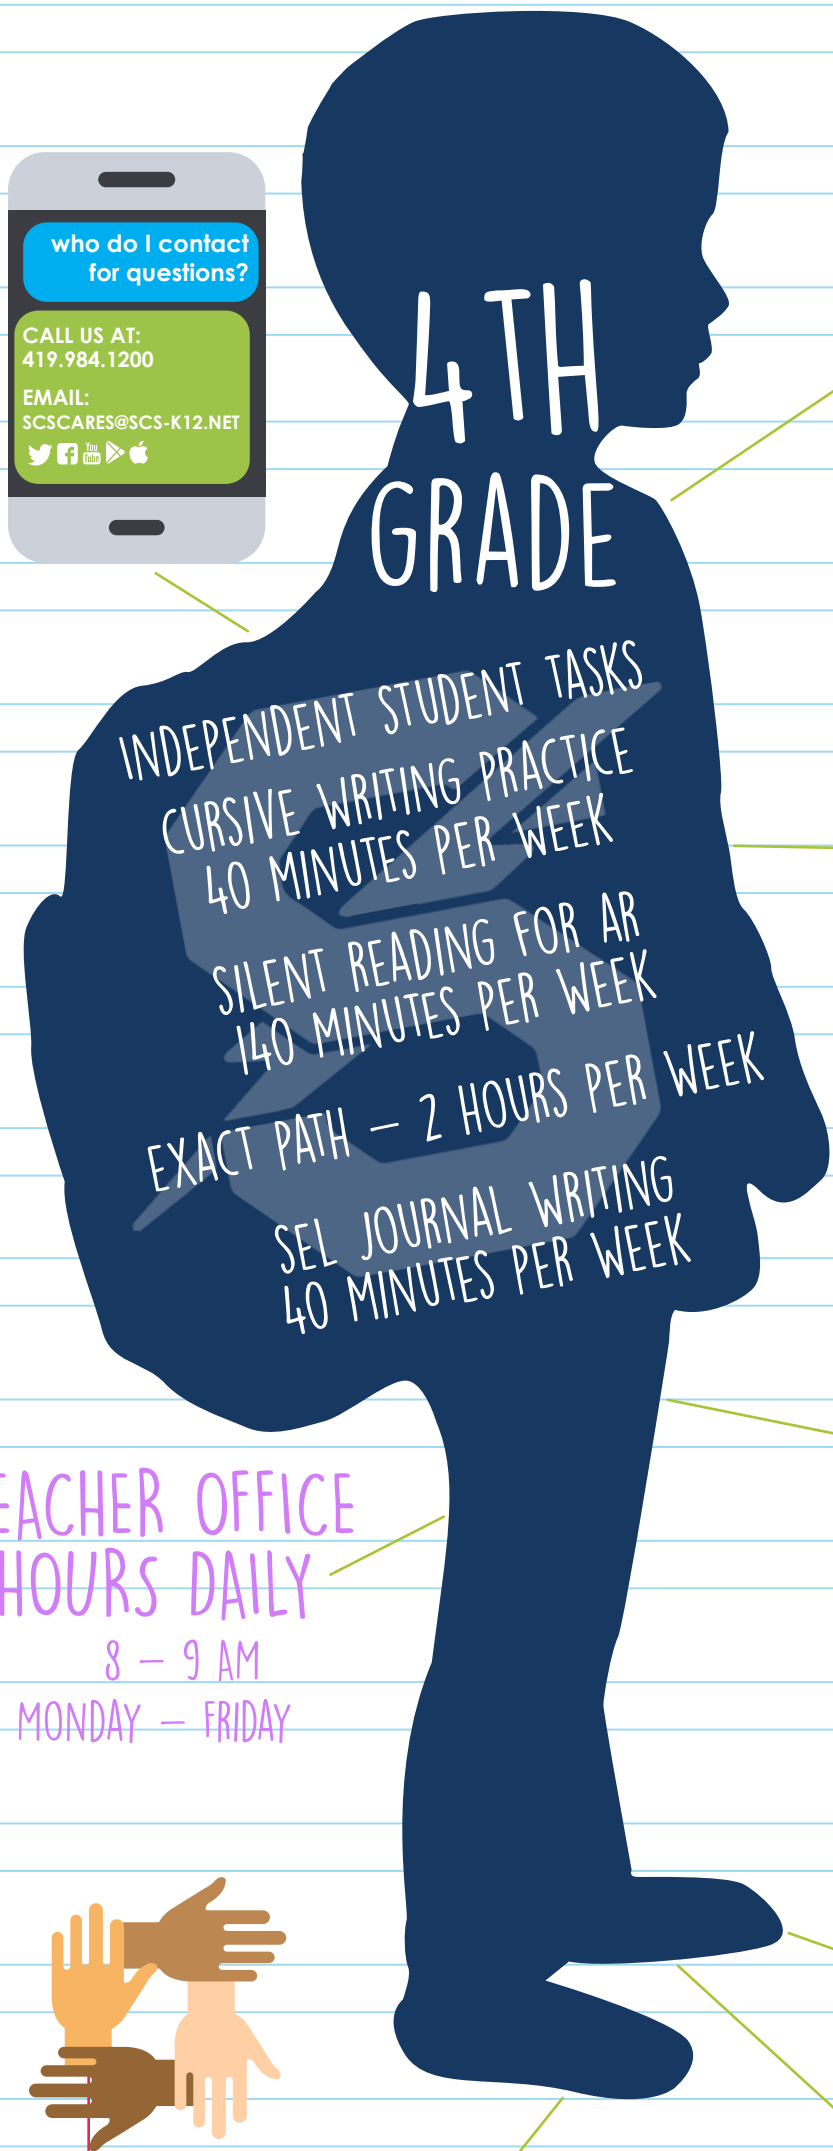 who do I contact
for questions?
CALL US AT:
419.984.1200
EMAIL:
SCSCARES@SCS-K12.NET
You
Tube
4TH
GRADE
INDEPENDENT STUDENT TASKS
CURSIVE WRITING PRACTICE
40 MINUTES PER WEEK
SILENT READING FOR AR
140 MINUTES PER WEEK
EXACT PATH – 2 HOURS PER WEEK
SEL JOURNAL WRITING
40 MINUTES PER WEEK
EACHER OFFICE
HOURS DAILY
8 – 9 AM
MONDAY – FRIDAY